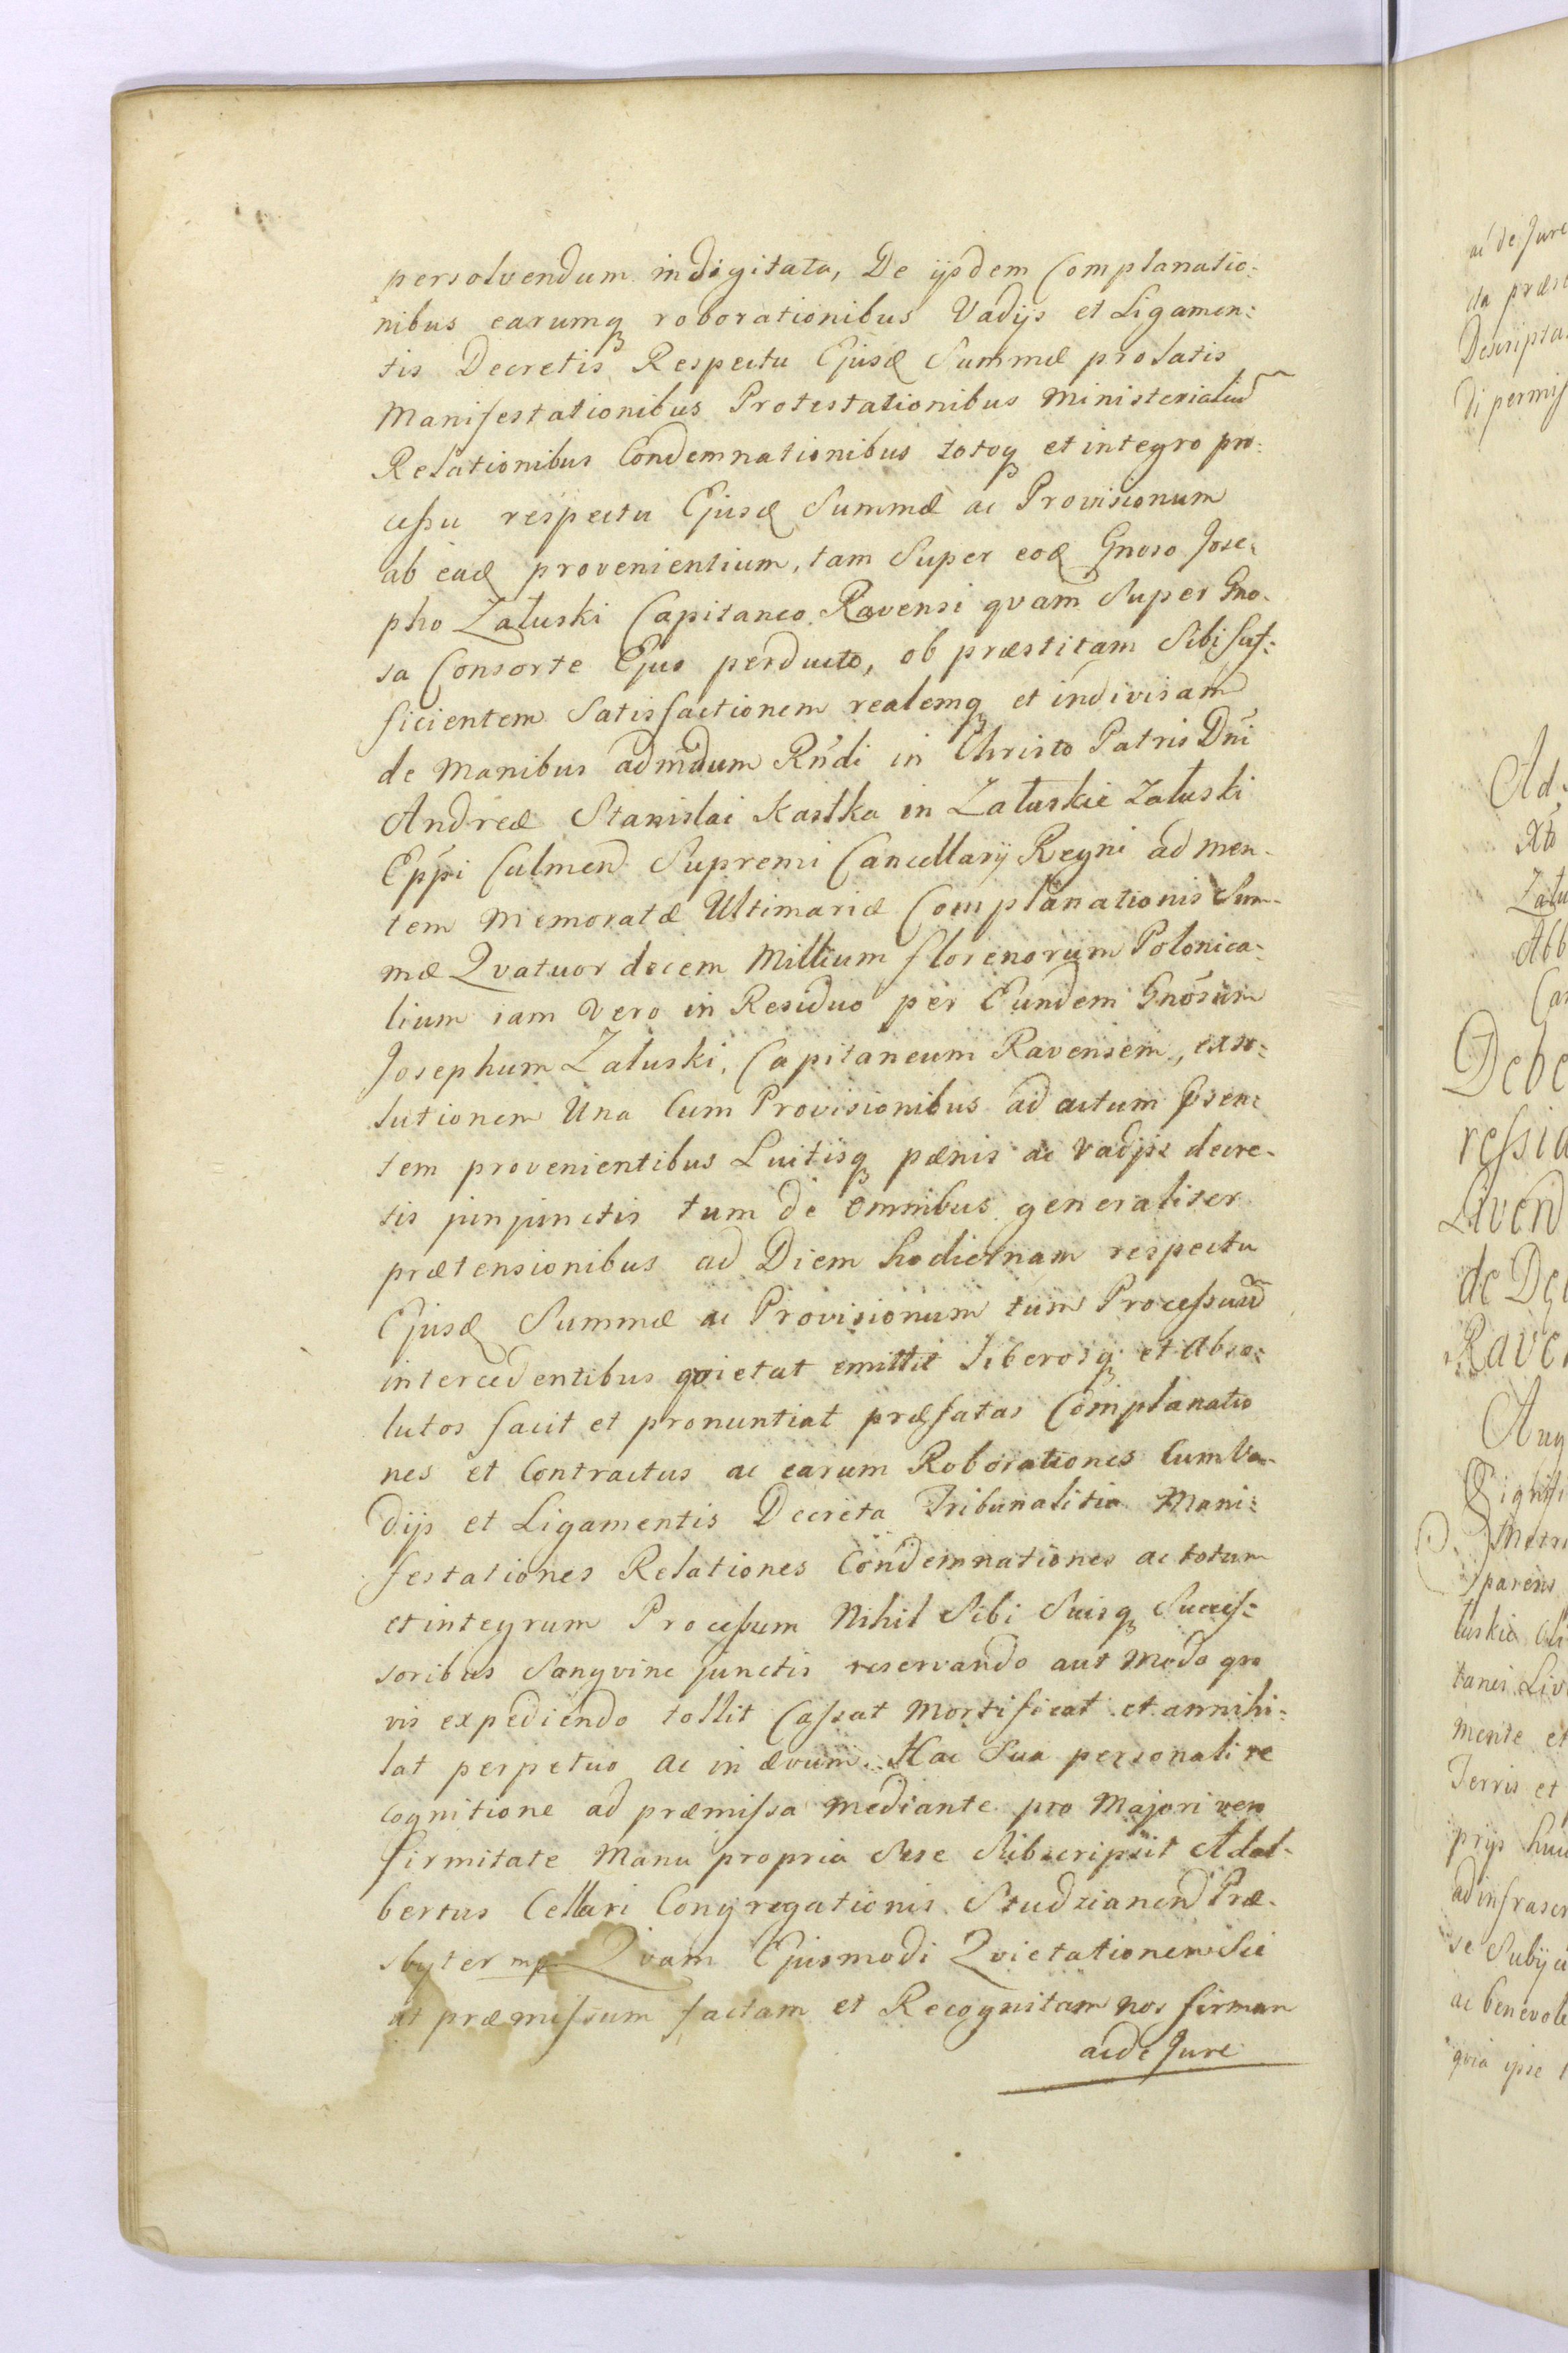 persolvendum indigitata, De ijsdem Complanatio:
nibus earumq roborationibus Vadijs et Ligamen:
tis Decretis Respectu Ejusd Summæ prolatis
Manifestationibus Protestationibus Ministerialiu
Relationibus Condemnationibus totoq et integro pro:
cessu respectu Ejusd Summæ ac Provisionum
ab ead provenientium, tam Super eod Gnoso Jose:
pho Załuski Capitaneo Ravensi qvam Super Gno-
sa Consorte Ejus perducto, ob præstitam Sibi suf:
ficientem Satisfactionem realemq et indivisam
de Manibus admdum Rndi in Christo Patris Dni
Andreæ Stanislai Kostka in Załuskie Załuski
Eppi Culmen Supremi Cancellarij Regni ad men-
tem Memoratæ Ultimariæ Complanationis Sum-
mæ Qvatuor decem Millium florenorum Polonica:
lium iam Vero in Residuo per Eundem Gnosum
Josephum Załuski, Capitaneum Ravensem, exso:
lutionem Una Cum Provisionibus ad actum Psen:
tem provenientibus Luitisq pænis ac Vadijs decre-
tis injunctis tum de omnibus generaliter
prætensionibus ad Diem hodiernam respectu
Ejusd Summæ ac Provisionum tum Processuu
intercedentibus qvietat emittit liberosq et abso:
lutos facit et pronuntiat præfatas Complanatio
nes et Contractus ac earum Roborationes Cum Va-
dijs et Ligamentis Decreta Tribunalitia Mani:
festationes Relationes Condemnationes ac totum
et integrum Processum Nihil Sibi Suisq Succes:
soribus Sangvine junctis reservando aut Modo qvo
vis expediendo tollit Cassat Mortificat et annihi:
lat perpetuo ac in ævum. Hac Sua personali re
cognitione ad præmissa mediante pro Majori vero
firmitate Manu propria Sese Subscripsit Adal-
bertus Cellari Congregationis Studzianen Præ-
sbyter mp Qvam Ejusmodi Qvietationem Sic
ut præmissum factam et Recognitam nos firmam
ac de Jure